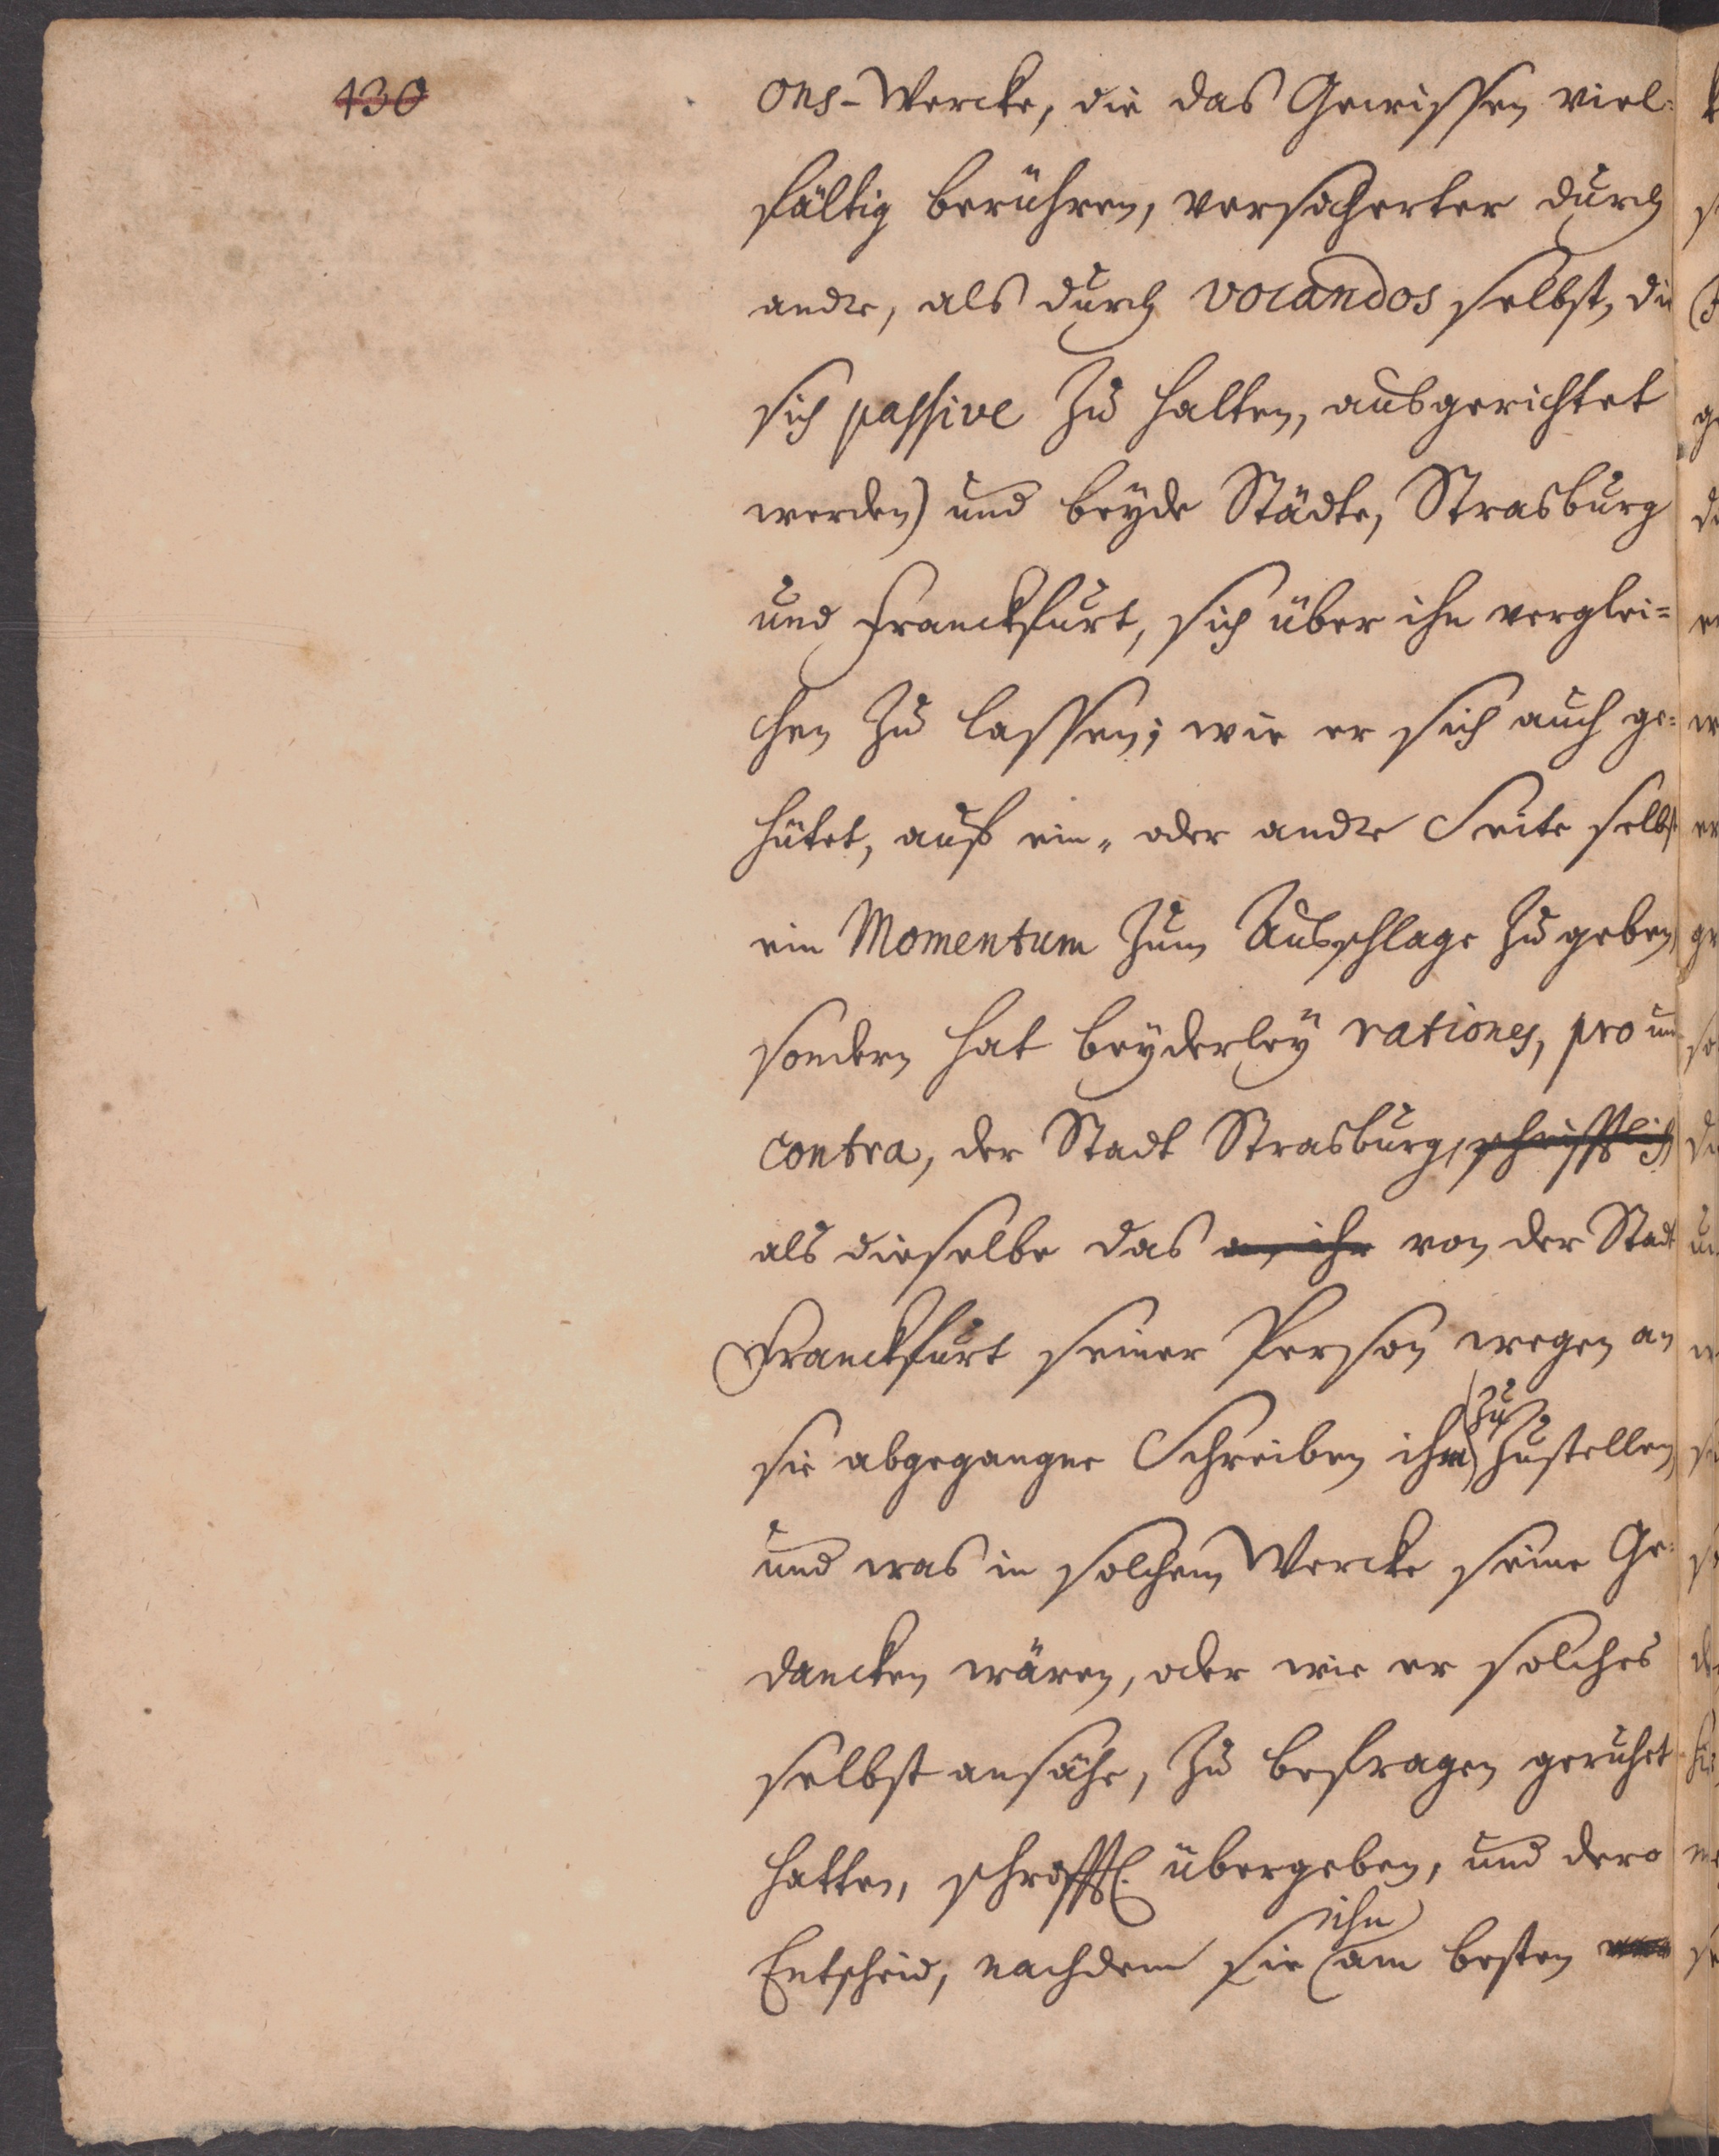 130
ons-Wercke, die das Gewissen viel-
fältig berühren, versicherter durch
andre, als durch vocandos selbst, die
sich passive zu halten, ausgerichtet
werden) und beÿde Städte, Strasburg
und Franckfurt, sich über ihn verglei-
chen zu lassen; wie er sich auch ge-
hütet, auf ein- oder andre Seite selbst
ein Momentum zum Ausschlage zu geben,
sondern hat beÿderleÿ rationes, pro und
contra, der Stadt Strasburg, schrifftlich
als dieselbe das an ihr von der Stadt
Franckfurt seiner Person wegen an
sie abgegangne Schreiben ihm zu zustellen,
und was in solchem Wercke seine Ge-
dancken wären, oder wie er solches
selbst ansähe, zu befragen geruhet
hatten, schrifftl. übergeben, und dero
Entscheid, nachdem sie ihn am besten